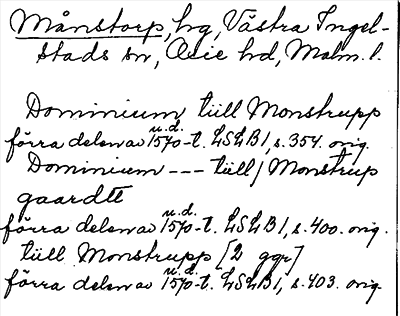 Månstorp, hg, Västra Ingel-
stads sn, Oxie hd, Malm. l.
Dominium tüll Monstrupp
u.d.
förra delen av 1570-t. LSLB1, s. 354. orig.
Dominium --- tüll/Monstrup
gaardtt
u.d.
förra delen av 1570-t. LSLB1, s. 400. orig.
tüll Monstrupp [2 ggr]
u.d.
förra delen av 1570-t. LSLB1, s. 403. orig.